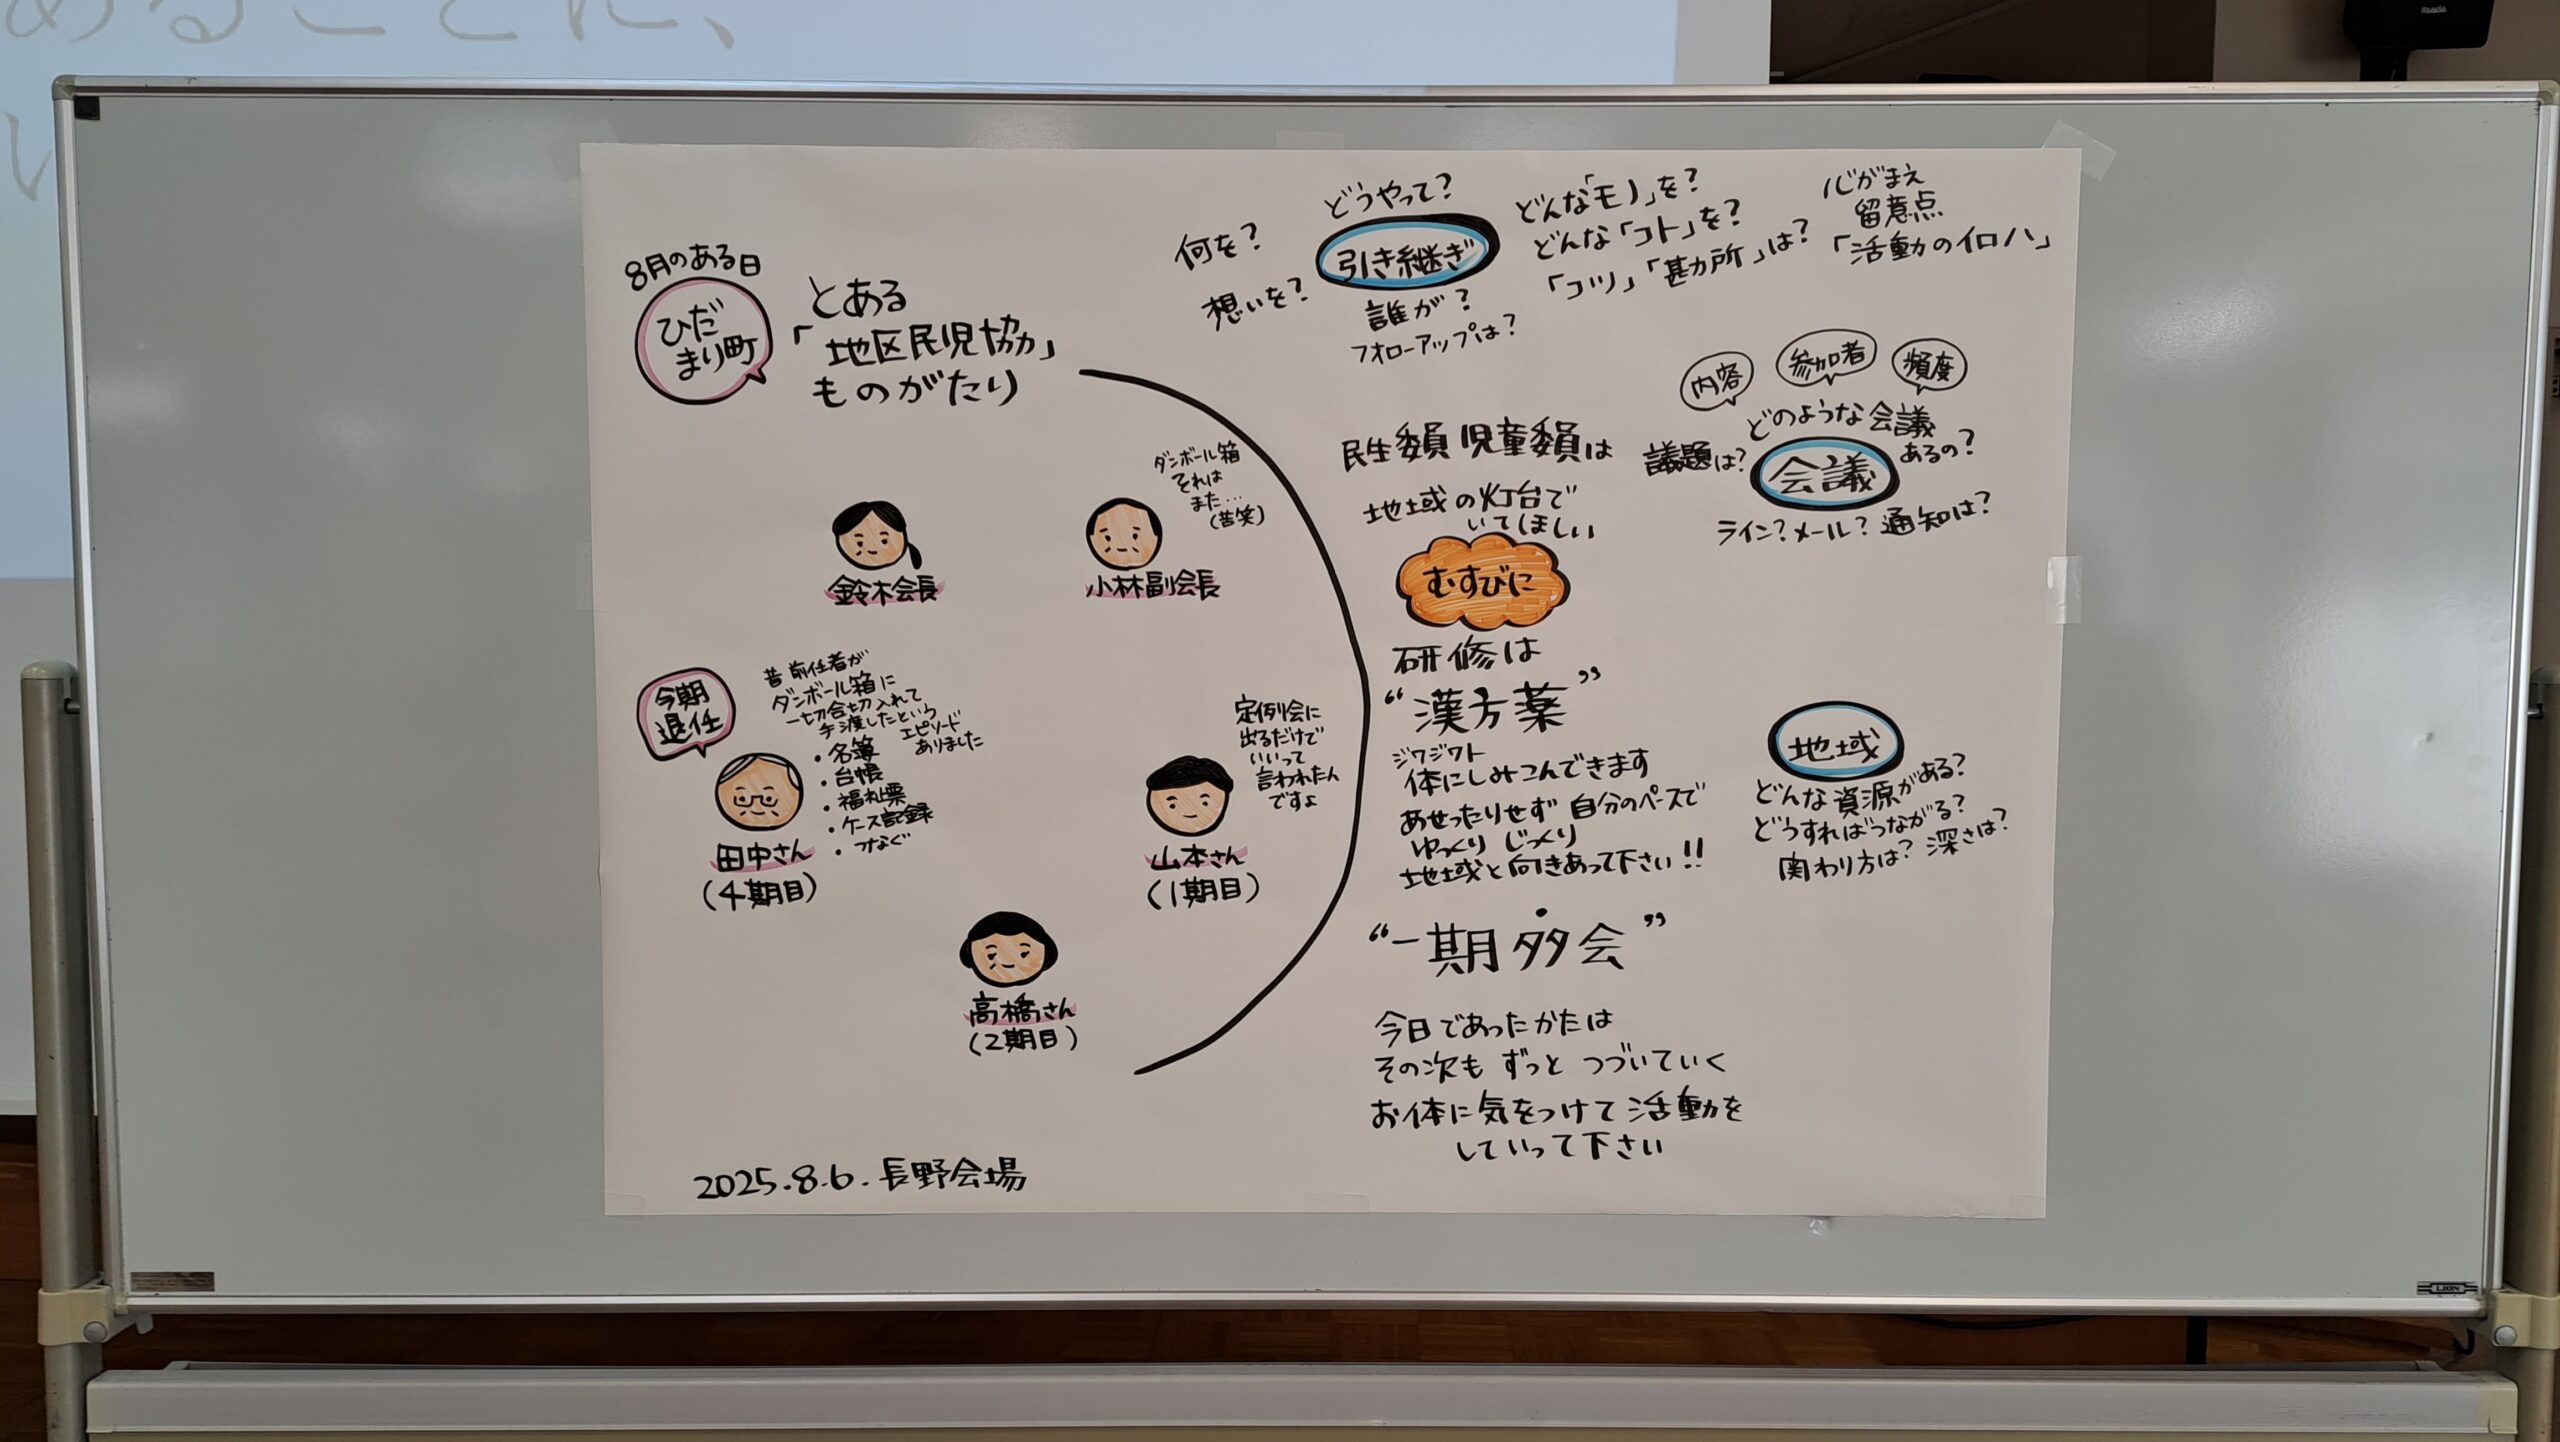 あることに、
8月のある日
ひだ
まり町
とある
「地区民児協」
ものがたり
鈴木会長
小林副会長
ダンボール箱
それは
また…
(苦笑)
今期
退任
昔 前任者が
ダンボール箱に
一切合切入れて
手渡したという
エピソード
ありました
・名簿
・台帳
・福祉票
・ケース記録
・つなぐ
田中さん
(4期目)
定例会に
出るだけで
いいって
言われたん
ですよ
山本さん
(1期目)
高橋さん
(2期目)
2025.8.6.長野会場
何を?
どうやって?
想いを?
引き継ぎ
誰が?
フォローアップは?
どんな「モノ」を?
どんな「コト」を?
「コツ」「甚カ所」は?
心がまえ
留意点
「活動のイロハ」
民生委員 児童委員は
地域の灯台で
いてほしい
内容
参加者
頻度
どのような会議
あるの?
議題は?
会議
ライン?メール?通知は?
むすびに
研修は
“漢方薬”
ジワジワト
体にしみこんできます
あせったりせず 自分のペースで
ゆっくり じっくり
地域と向きあって下さい!!
地域
どんな資源がある?
どうすればつながる?
関わり方は? 深さは?
“一期多会”
今日であったかたは
その次も ずっと つづいていく
お体に気をつけて活動を
していって下さい
LION